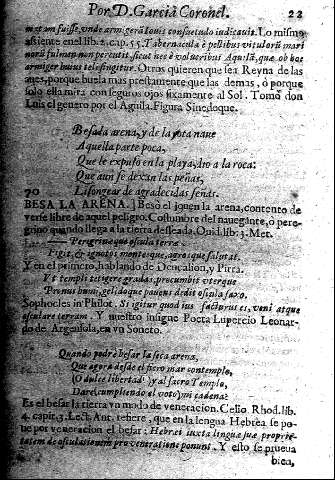 Por D. Garcia Coronel. 22
matam fuisse, unde armigerā Iouis consuetudo iudicauit. Lo mismo
assiente en el lib. 2. cap. 55. Tabernacula è pellibus vitulorū mari
norū fulmen non percutit, sicut nec è volucribus Aquilā, quæ ob hoc
armiger huius teli fingitur. Otros quieren que sea Reyna de las
aues, porque buela mas prestamente que las demas, ò porque
solo ella mira con seguros ojos fixamente al Sol. Tomò don
Luis el genero por el Aguila. Figura Sinedoque.
Besa da arena, y de la rota naue
Aquella parte poca,
Que le expuso en la playa, dio a la roca:
Que aun se dexan las peñas,
70 Lisongear de agradecidas señas.
BESA LA ARENA.] Besò el jouen la arena, contento de
verse libre de aquel peligro. Costumbre del nauegāte, ò pere-
grino quando llega a la tierra desseada. Ouid. lib. 3. Met.
Peregrinæque oscula terræ
Figit, & ignotos montesque, agrosque salutat
Y en el primero, hablando de Deucalion, y Pirra.
Vt templi tetigere gradus, procumbit vterque
Pronus humi, gelidoque pauens dedit oscula saxo.
Sophocles in Philot. Si igitur quod ius facturus es, veni atque
osculare terram. Y nuestro insigne Poeta Lupercio Leonar-
do de Argensola, en vn Soneto.
Quando podrè besar la seca arena,
Que agora desde el fiero mar contemplo,
(O dulce libertad!) y al sacro Templo,
Dare (cumpliendo el voto) mi cadena?
Es el besar la tierra vn modo de veneracion. Celio Rhod. lib.
4. capit. 3. Lect. Ant. refiere, que en la lengua Hebrea se po-
ne por veneracion el besar: Hebræi iuxta linguæ suæ proprie-
tatem deosculationem pro veneratione ponunt. Y esto se prueua
bien,